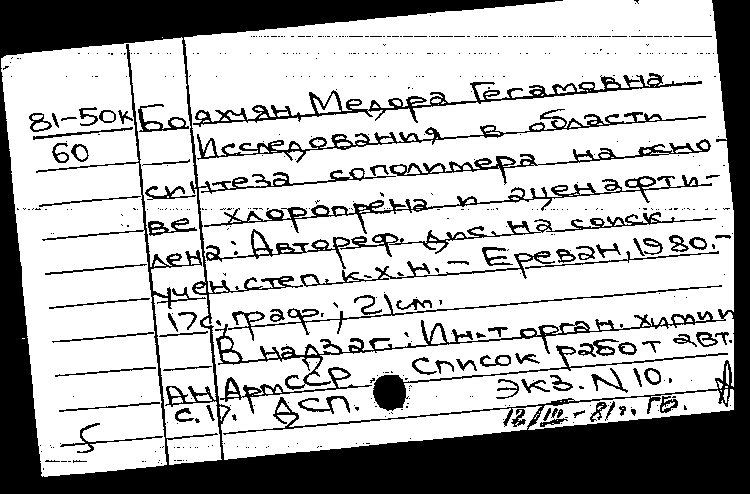 81-50к Бояхчян, Медора Гегамовна.
60 Исследования в области
синтеза сополимера на осно-
ве хлоропрена и аценафти-
лена: Автореф. дис. на соиск.
учен. степ. к.х.н. – Ереван, 1980.-
17с., граф.; 21см.
В надзаг.: Ин-т орган. химии
АН АрмССР. Список работ авт.
с. 17. ДСП. ЭКЗ. N 10.
5 12/III-81г. ГБ.